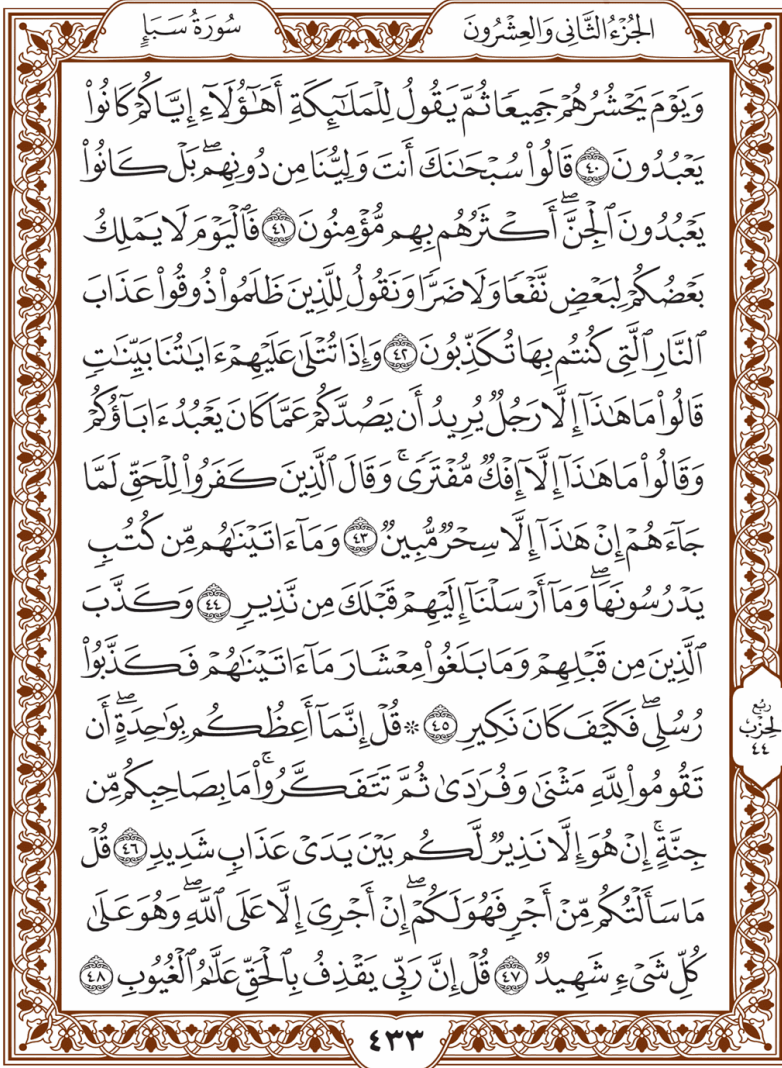 الجُزْءُ الثَّانِي وَالعِشْرُونَ
سُورَةُ سَبَإٍ
وَيَوْمَ يَحْشُرُهُمْ جَمِيعًا ثُمَّ يَقُولُ لِلْمَلَٰٓئِكَةِ أَهَٰٓؤُلَآءِ إِيَّاكُمْ كَانُوا۟
يَعْبُدُونَ ٤٠ قَالُوا۟ سُبْحَٰنَكَ أَنتَ وَلِيُّنَا مِن دُونِهِمۖ بَلْ كَانُوا۟
يَعْبُدُونَ ٱلْجِنَّۖ أَكْثَرُهُم بِهِم مُّؤْمِنُونَ ٤١ فَٱلْيَوْمَ لَا يَمْلِكُ
بَعْضُكُمْ لِبَعْضٍ نَّفْعًا وَلَا ضَرًّا وَنَقُولُ لِلَّذِينَ ظَلَمُوا۟ ذُوقُوا۟ عَذَابَ
ٱلنَّارِ ٱلَّتِى كُنتُم بِهَا تُكَذِّبُونَ ٤٢ وَإِذَا تُتْلَىٰ عَلَيْهِمْ ءَايَٰتُنَا بَيِّنَٰتٍ
قَالُوا۟ مَا هَٰذَآ إِلَّا رَجُلٌ يُرِيدُ أَن يَصُدَّكُمْ عَمَّا كَانَ يَعْبُدُ ءَابَآؤُكُمْ
وَقَالُوا۟ مَا هَٰذَآ إِلَّآ إِفْكٌ مُّفْتَرًىۚ وَقَالَ ٱلَّذِينَ كَفَرُوا۟ لِلْحَقِّ لَمَّا
جَآءَهُمْ إِنْ هَٰذَآ إِلَّا سِحْرٌ مُّبِينٌ ٤٣ وَمَآ ءَاتَيْنَٰهُم مِّن كُتُبٍ
يَدْرُسُونَهَاۖ وَمَآ أَرْسَلْنَآ إِلَيْهِمْ قَبْلَكَ مِن نَّذِيرٍ ٤٤ وَكَذَّبَ
ٱلَّذِينَ مِن قَبْلِهِمْ وَمَا بَلَغُوا۟ مِعْشَارَ مَآ ءَاتَيْنَٰهُمْ فَكَذَّبُوا۟
رُسُلِىۖ فَكَيْفَ كَانَ نَكِيرِ ٤٥ ۞ قُلْ إِنَّمَآ أَعِظُكُم بِوَٰحِدَةٍۖ أَن
تَقُومُوا۟ لِلَّهِ مَثْنَىٰ وَفُرَٰدَىٰ ثُمَّ تَتَفَكَّرُوا۟ۚ مَا بِصَاحِبِكُم مِّن
جِنَّةٍۚ إِنْ هُوَ إِلَّا نَذِيرٌ لَّكُم بَيْنَ يَدَىْ عَذَابٍ شَدِيدٍ ٤٦ قُلْ
مَا سَأَلْتُكُم مِّنْ أَجْرٍ فَهُوَ لَكُمْۖ إِنْ أَجْرِىَ إِلَّا عَلَى ٱللَّهِۖ وَهُوَ عَلَىٰ
كُلِّ شَىْءٍ شَهِيدٌ ٤٧ قُلْ إِنَّ رَبِّى يَقْذِفُ بِٱلْحَقِّ عَلَّٰمُ ٱلْغُيُوبِ ٤٨
رُبُع
الحِزْب
٤٤
٤٣٣